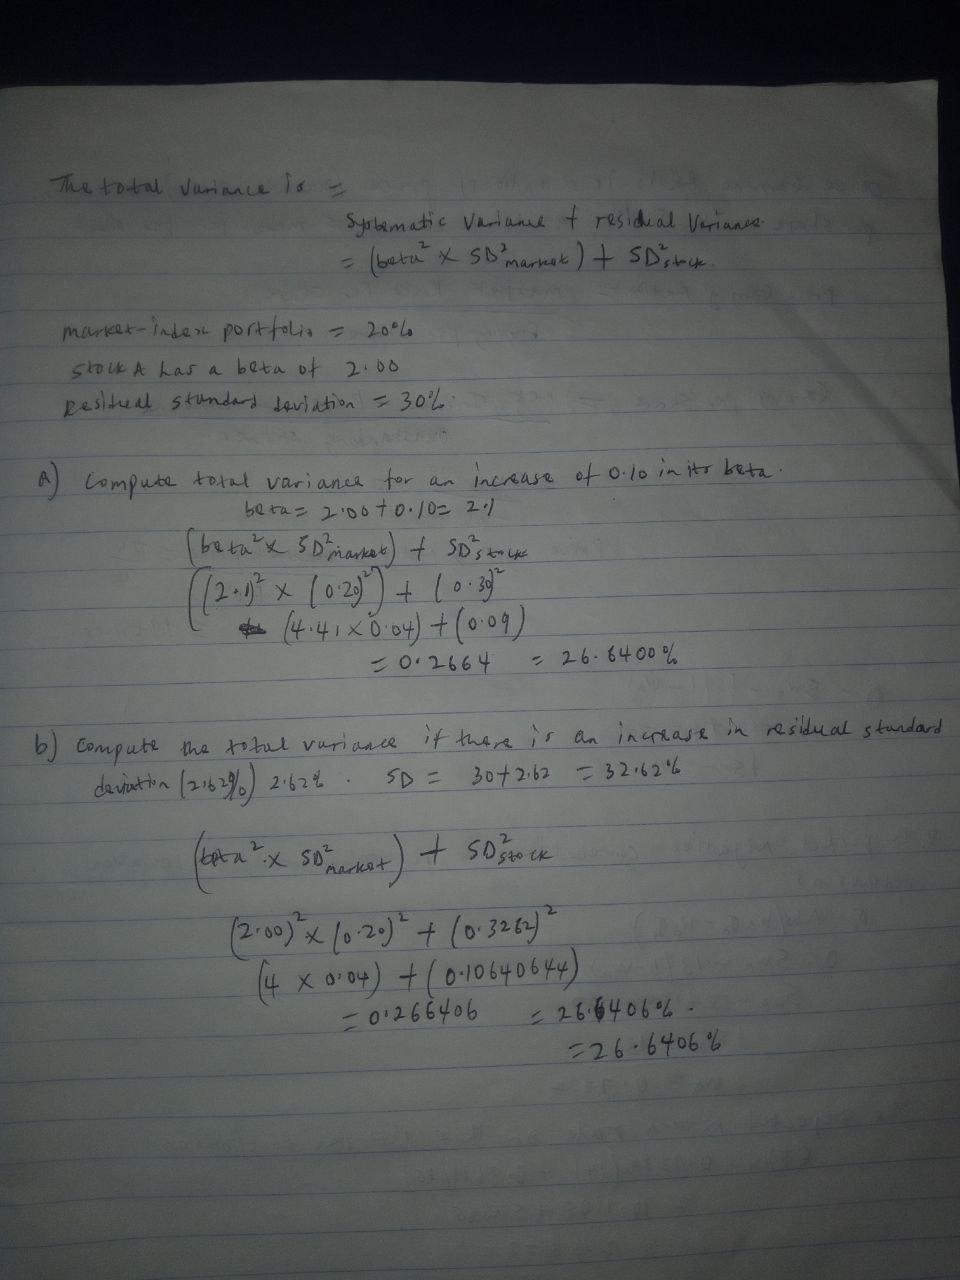 The total variance is =
Systematic variance + residual variance.
= (beta² x SD²market) + SD²stock.
market-index portfolio = 20%
stock A has a beta of 2.00
Residual standard deviation = 30%.
A) Compute total variance for an increase of 0.10 in its beta.
beta = 2.00 + 0.10 = 2.1
(beta² x SD²market) + SD²stock
((2.1)² x (0.20)²) + (0.30)²
(4.41 x 0.04) + (0.09)
= 0.2664 = 26.6400%
b) Compute the total variance if there is an increase in residual standard
deviation (2.62%) 2.62%. SD = 30 + 2.62 = 32.62%
(beta² x SD²market) + SD²stock
(2.00)² x (0.20)² + (0.3262)²
(4 x 0.04) + (0.10640644)
= 0.266406 = 26.6406%.
= 26.6406%